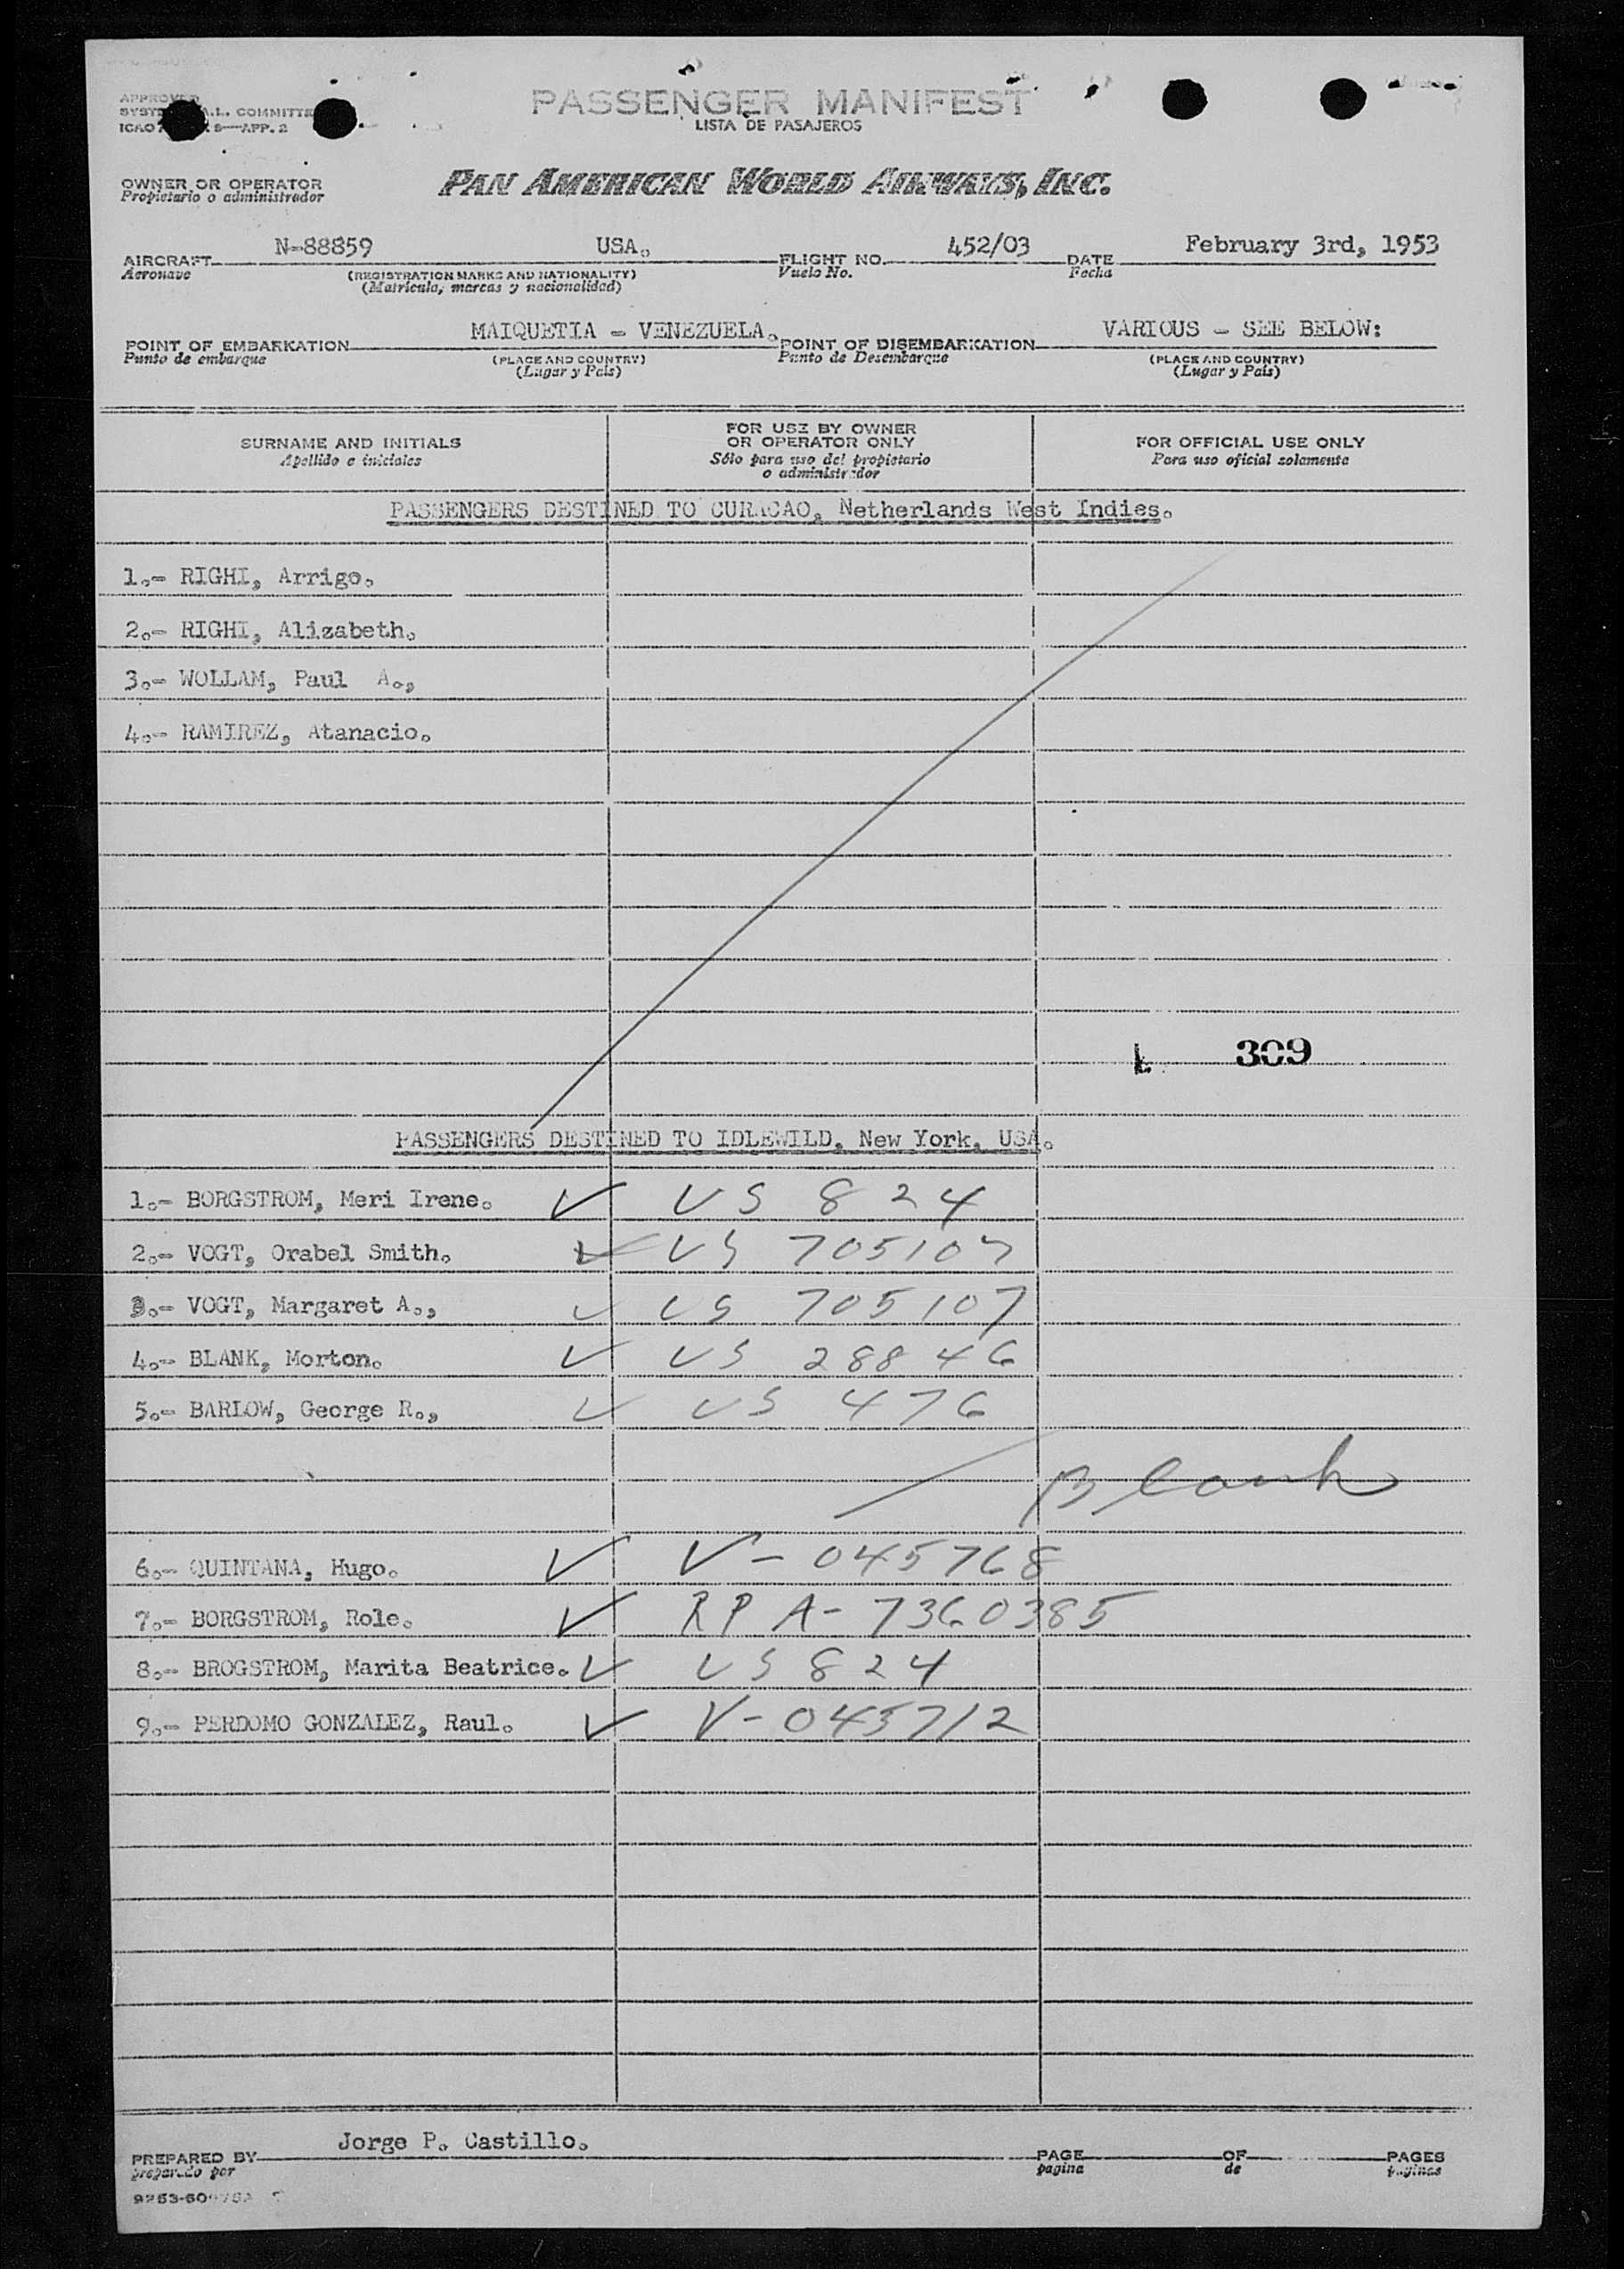 PASSENGER MANIFEST
LISTA DE PASAJEROS
APPROVED
COMMITTE
ICAO 9—APP. 2
OWNER OR OPERATOR
Propietario o administrador
PAN AMERICAN WORLD AIRWAYS, INC.
AIRCRAFT N-88859 USA. FLIGHT NO. 452/03 DATE February 3rd, 1953
Aeronave (REGISTRATION MARKS AND NATIONALITY) Vuelo No. Fecha
(Matricula, marcas y nacionalidad)
POINT OF EMBARKATION MAIQUETIA - VENEZUELA. POINT OF DISEMBARKATION VARIOUS - SEE BELOW:
Punto de embarque (PLACE AND COUNTRY) Punto de Desembarque (PLACE AND COUNTRY)
(Lugar y País) (Lugar y País)
SURNAME AND INITIALS
Apellido e iniciales
FOR USE BY OWNER
OR OPERATOR ONLY
Sólo para uso del propietario
o administrador
FOR OFFICIAL USE ONLY
Para uso oficial solamente
PASSENGERS DESTINED TO CURACAO, Netherlands West Indies.
1.- RIGHI, Arrigo.
2.- RIGHI, Alizabeth.
3.- WOLLAM, Paul A.,
4.- RAMIREZ, Atanacio.
309
PASSENGERS DESTINED TO IDLEWILD, New York, USA.
1.- BORGSTROM, Meri Irene. ✓ US 824
2.- VOGT, Orabel Smith. ✓ US 705107
3.- VOGT, Margaret A., ✓ US 705107
4.- BLANK, Morton. ✓ US 28846
5.- BARLOW, George R., ✓ US 476
Blank
6.- QUINTANA, Hugo. ✓ V-045768
7.- BORGSTROM, Role. ✓ RP A-7360385
8.- BROGSTROM, Marita Beatrice. ✓ US 824
9.- PERDOMO GONZALEZ, Raul. ✓ V-045712
PREPARED BY Jorge P. Castillo. PAGE OF PAGES
preparado por pagina de paginas